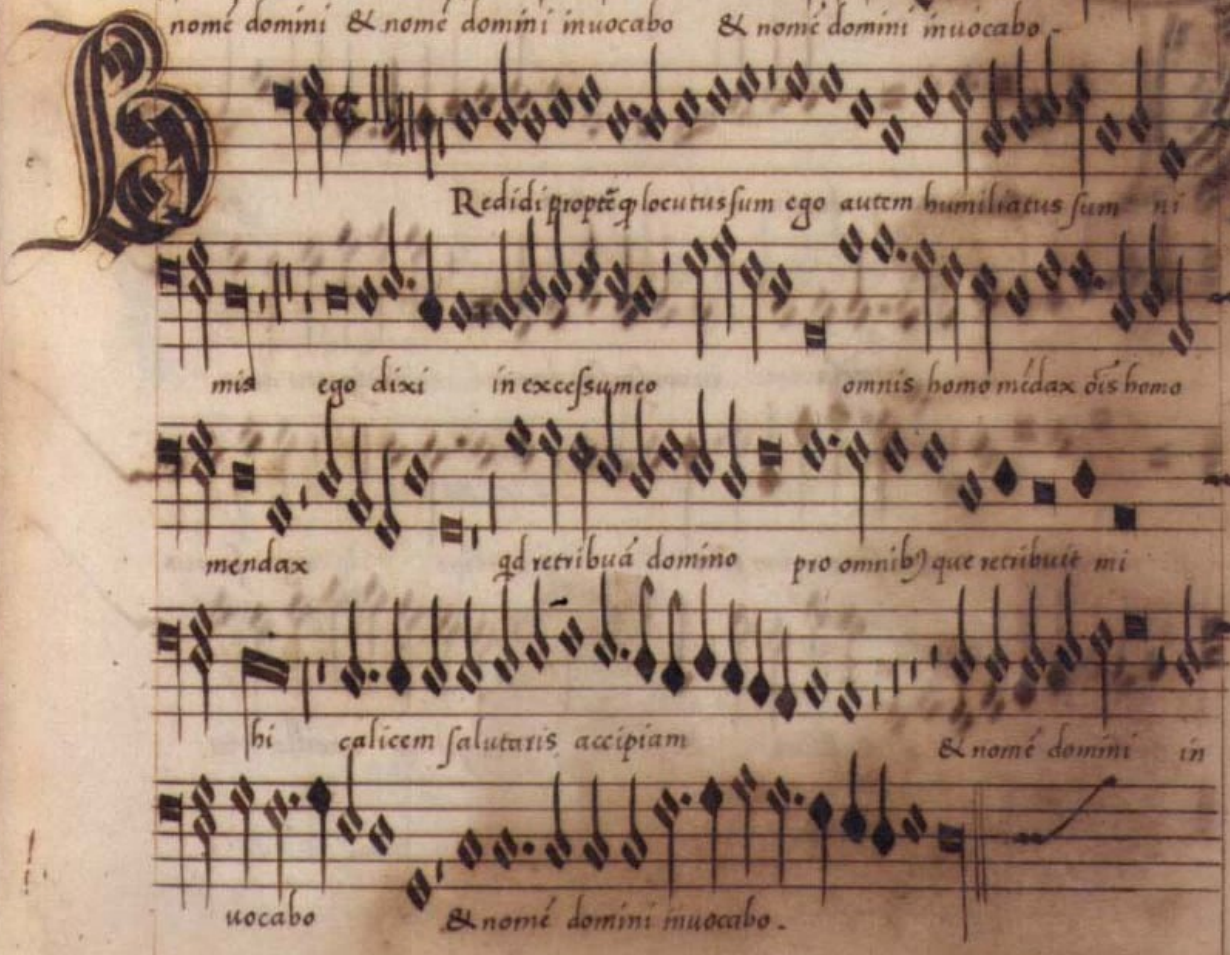 nomē domini & nomē domini inuocabo & nomē domini inuocabo.
Redidi proptē qͥ locutus sum ego autem humiliatus sum ni
mis ego dixi in excessu meo omnis homo mēdax oīs homo
mendax qd retribuā domino pro omnibꝰ que retribuit mi
hi calicem salutaris accipiam & nomē domini in
uocabo & nomē domini inuocabo.